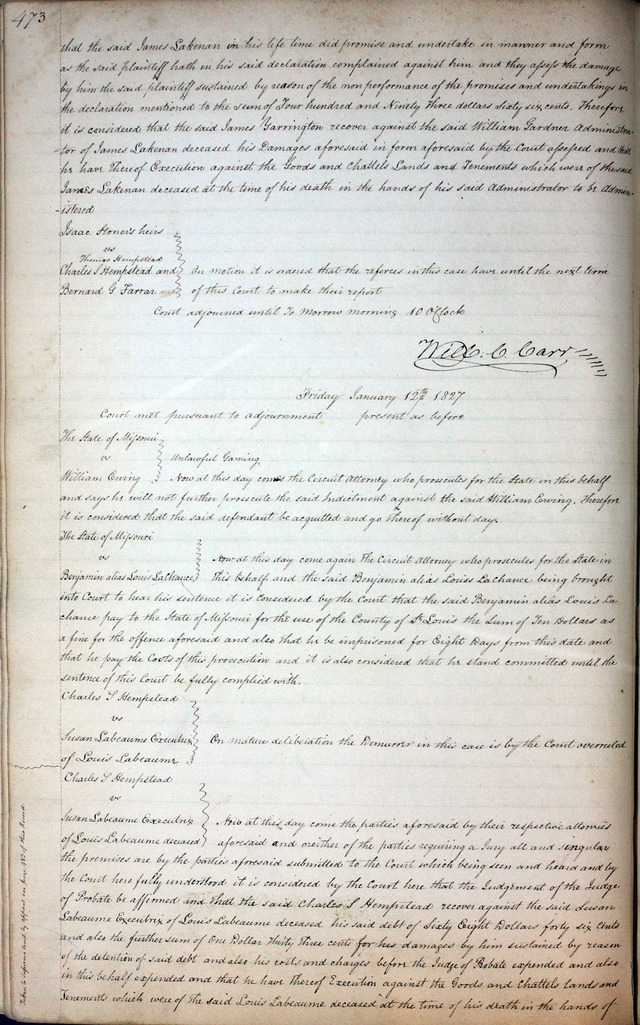 473
that the said James Lakenan in his life time did promise and undertake in manner and form
as the said plaintiff hath in his said declaration complained against him and they assess the damage
by him the said plaintiff sustained by reason of the non performance of the promises and undertakings in
the declaration mentioned to the sum of Four hundred and Ninety Three dollars Sixty six cents. Therefore
it is considered that the said James Garrington recover against the said William Gardner Administra-
tor of James Lakenan deceased his Damages aforesaid in form aforesaid by the Court assessed and that
he have thereof Execution against the Goods and Chattels Lands and Tenements which were of the said
James Lakenan deceased at the time of his death in the hands of his said Administrator to be Admin-
-istered
Isaac Honer's heirs
vs
Thomas Hempstead
Charles S Hempstead and
Bernard G Farrar
On motion it is ordered that the referees in this case have until the next term
of this Court to make their report
Court adjourned until To Morrow morning 10 OClock
Will. C. Carr
Friday January 12th 1827
Court met pursuant to adjournment present as before
The State of Missouri
vs
Unlawful Gaming
William Ewing
Now at this day comes the Circuit Attorney who prosecutes for the State in this behalf
and says he will not further prosecute the said Indictment against the said William Ewing. Therefore
it is considered that the said defendant be acquitted and go thereof without day
The State of Missouri
vs
Benjamin alias Louis LaChance
Now at this day come again the Circuit Attorney who prosecutes for the State in
this behalf and the said Benjamin alias Louis LaChance being brought
into Court to hear his sentence it is considered by the Court that the said Benjamin alias Louis La-
chance pay to the State of Missouri for the use of the County of St Louis the Sum of Ten Dollars as
a fine for the offence aforesaid and also that he be imprisoned for Eight Days from this date and
that he pay the Costs of this prosecution and it is also considered that he stand committed until the
sentence of this Court be fully complied with.
Charles S Hempstead
vs
Susan Labeaume Executrix
of Louis Labeaume
On mature deliberation the Demurrer in this case is by the Court overruled
Charles S Hempstead
vs
Susan Labeaume Executrix
of Louis Labeaume deceased
Now at this day come the parties aforesaid by their respective attornies
aforesaid and neither of the parties requiring a Jury all and singular
the premises are by the parties aforesaid submitted to the Court which being seen and heard and by
the Court here fully understood it is considered by the Court here that the Judgement of the Judge
of Probate be affirmed and that the said Charles S Hempstead recover against the said Susan
Labeaume Executrix of Louis Labeaume deceased his said debt of Sixty Eight Dollars forty six cents
and also the further sum of One Dollar Thirty Three cents for his damages by him sustained by reason
of the detention of said debt and also his costs and charges before the Judge of Probate expended and also
in this behalf expended and that he have thereof Execution against the Goods and Chattels Lands and
Tenements which were of the said Louis Labeaume deceased at the time of his death in the hands of